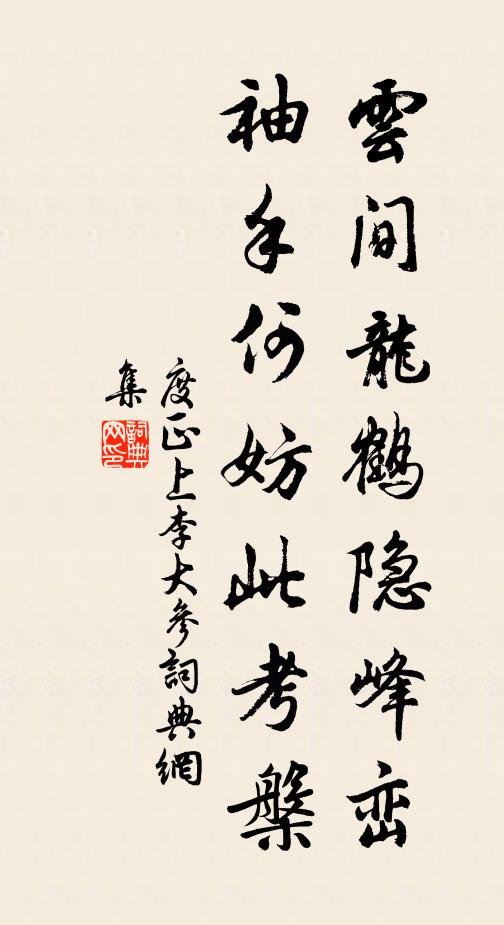 雲间龍鶴隐峰峦
袖手何妨此考槃
度正上李大参詞典網
集
詞典网印